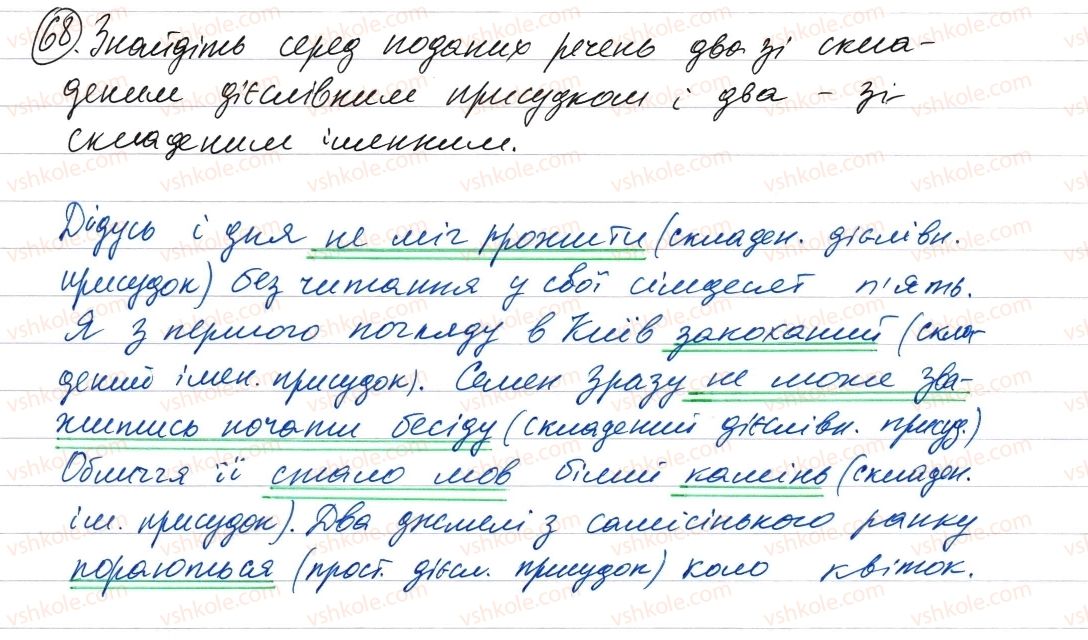 68. Знайдіть серед поданих речень два зі скла-
деним дієслівним присудком і два - зі
складеним іменним.
Дідусь і дня не міг прожити (складен. дієслівн.
присудок) без читання у свої сімдесят п'ять.
Я з першого погляду в Київ закоханий (скла-
дений імен. присудок). Семен зразу не може зва-
житись почати бесіду (складений дієслівн. присуд.)
Обличчя її стало мов білий камінь (складен.
ім. присудок). Два джмелі з самісінького ранку
пораються (прост. дієсл. присудок) коло квіток.